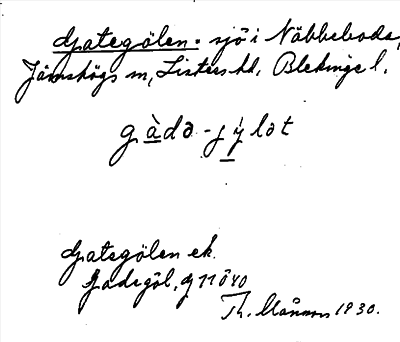 Gategölen. sjö i Näbbeboda,
Jämshögs sn, Listers hd, Blekinge l.
gàdə-jy̨lət
Gategölen ek.
Gadegöl, G 11 ö 40
Th. Månsson 1930.